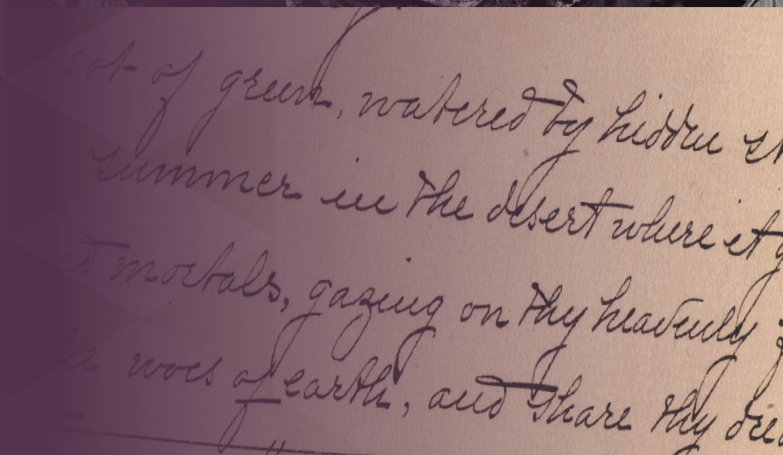 of green, watered by hidden
summer in the desert where it
mortals, gazing on thy heavenly
woes of earth, and share thy